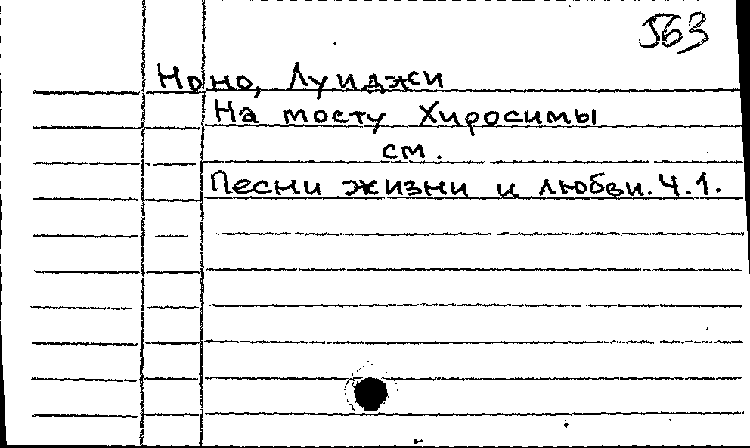 563
Ноно, Луиджи
На мосту Хиросимы
см.
Песни жизни и любви. Ч.1.